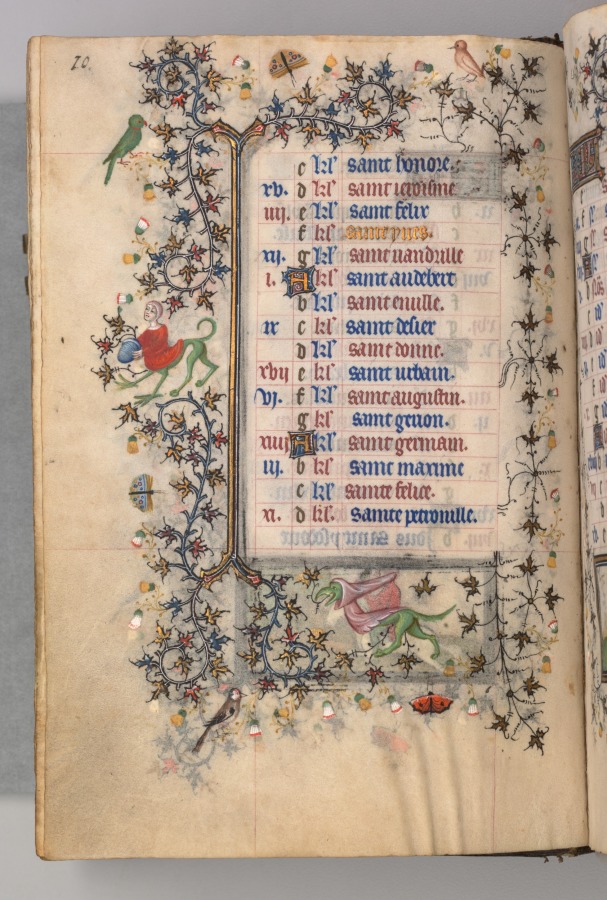 10.
c kl' saint honore.
xv. d kl' saint
iiij. e kl' saint felix
f kl' saint yues.
xij. g kl' saint uandrille
i. A kl' saint audebert
b kl' sainte
ix c kl' saint desier
d kl' saint donne.
xvij e kl' saint urbain.
vj. f kl' saint augustin.
g kl' saint
xiiij A kl' saint germain.
iij. b kl' saint maxime
c kl' sainte felice.
xi. d kl'. Sainte petronille.